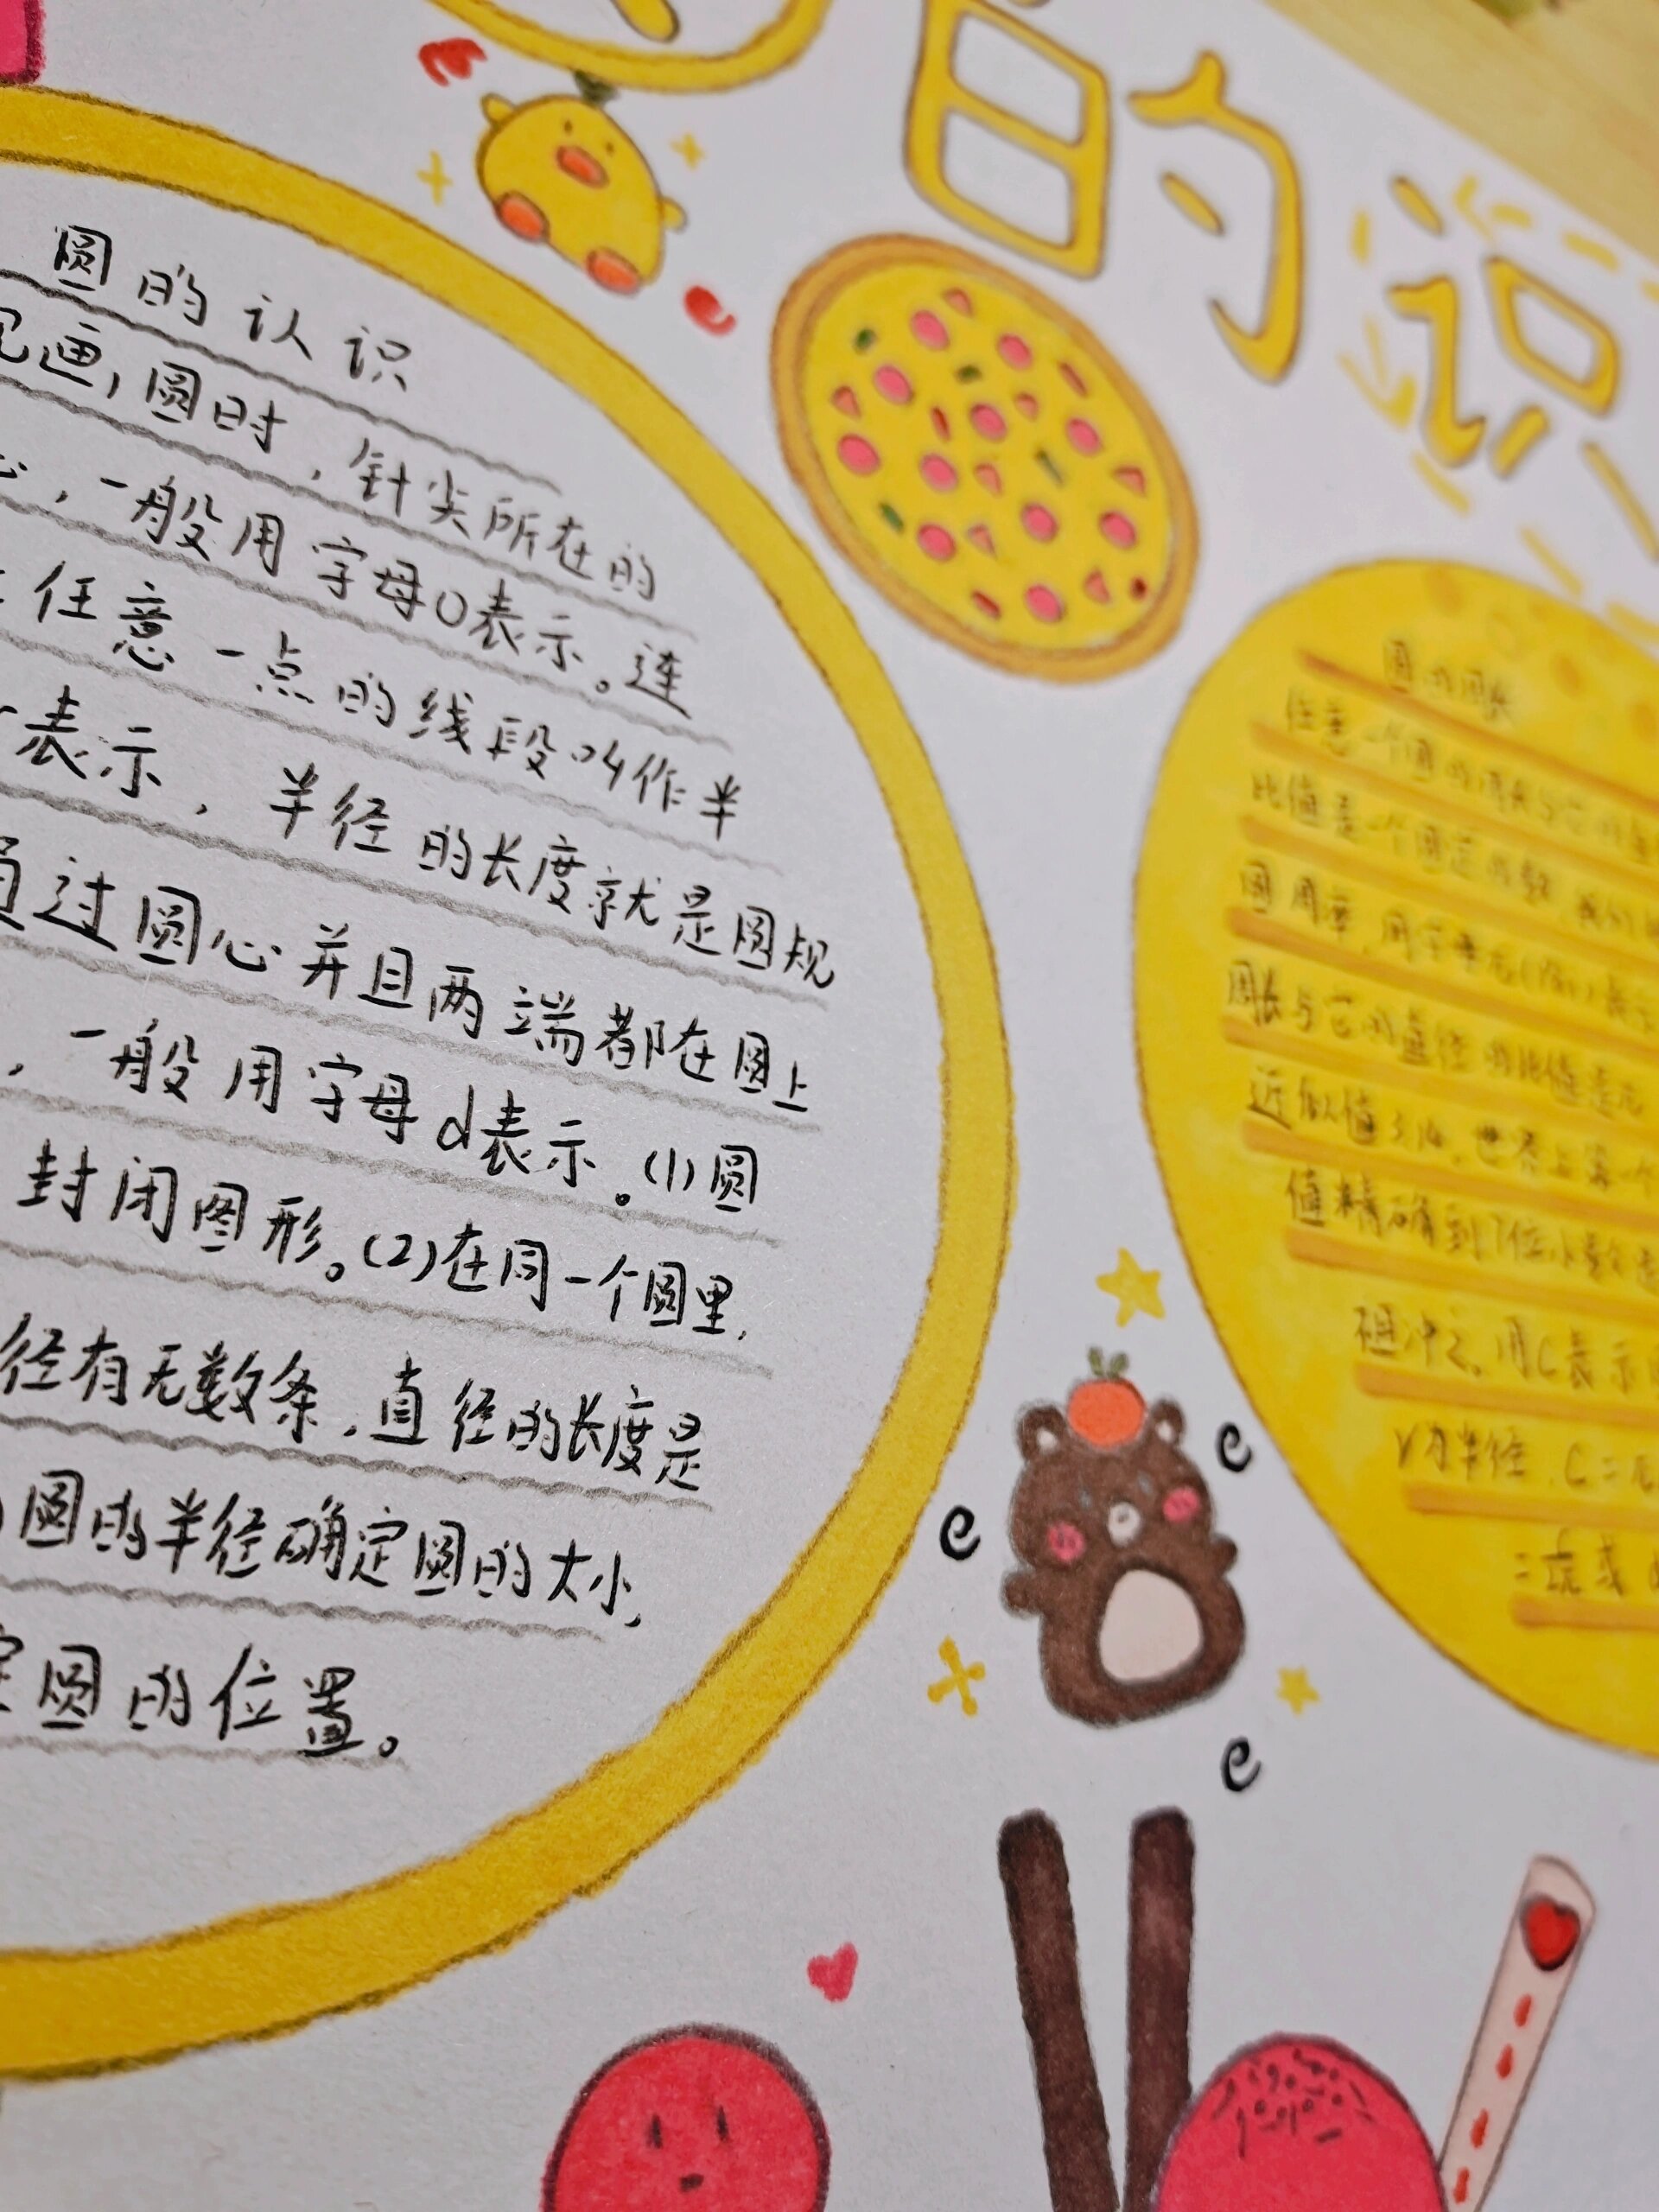 的识
圆的认识
画,圆时,针尖所在的
,一般用字母O表示。连
任意一点的线段叫作半
表示,半径的长度就是圆规
过圆心并且两端都在圆上
,一般用字母d表示。(1)圆
封闭图形。(2)在同一个圆里,
径有无数条,直径的长度是
圆的半径确定圆的大小,
圆的位置。
圆的周长
任意一个圆的周长与它的
比值是一个固定的数 我们
圆周率,用字母π(pài)表示
周长与它的直径的比值是π
近似值3.14,世界上第一个
值精确到7位小数
祖冲之,用C表示
r为半径,C=π